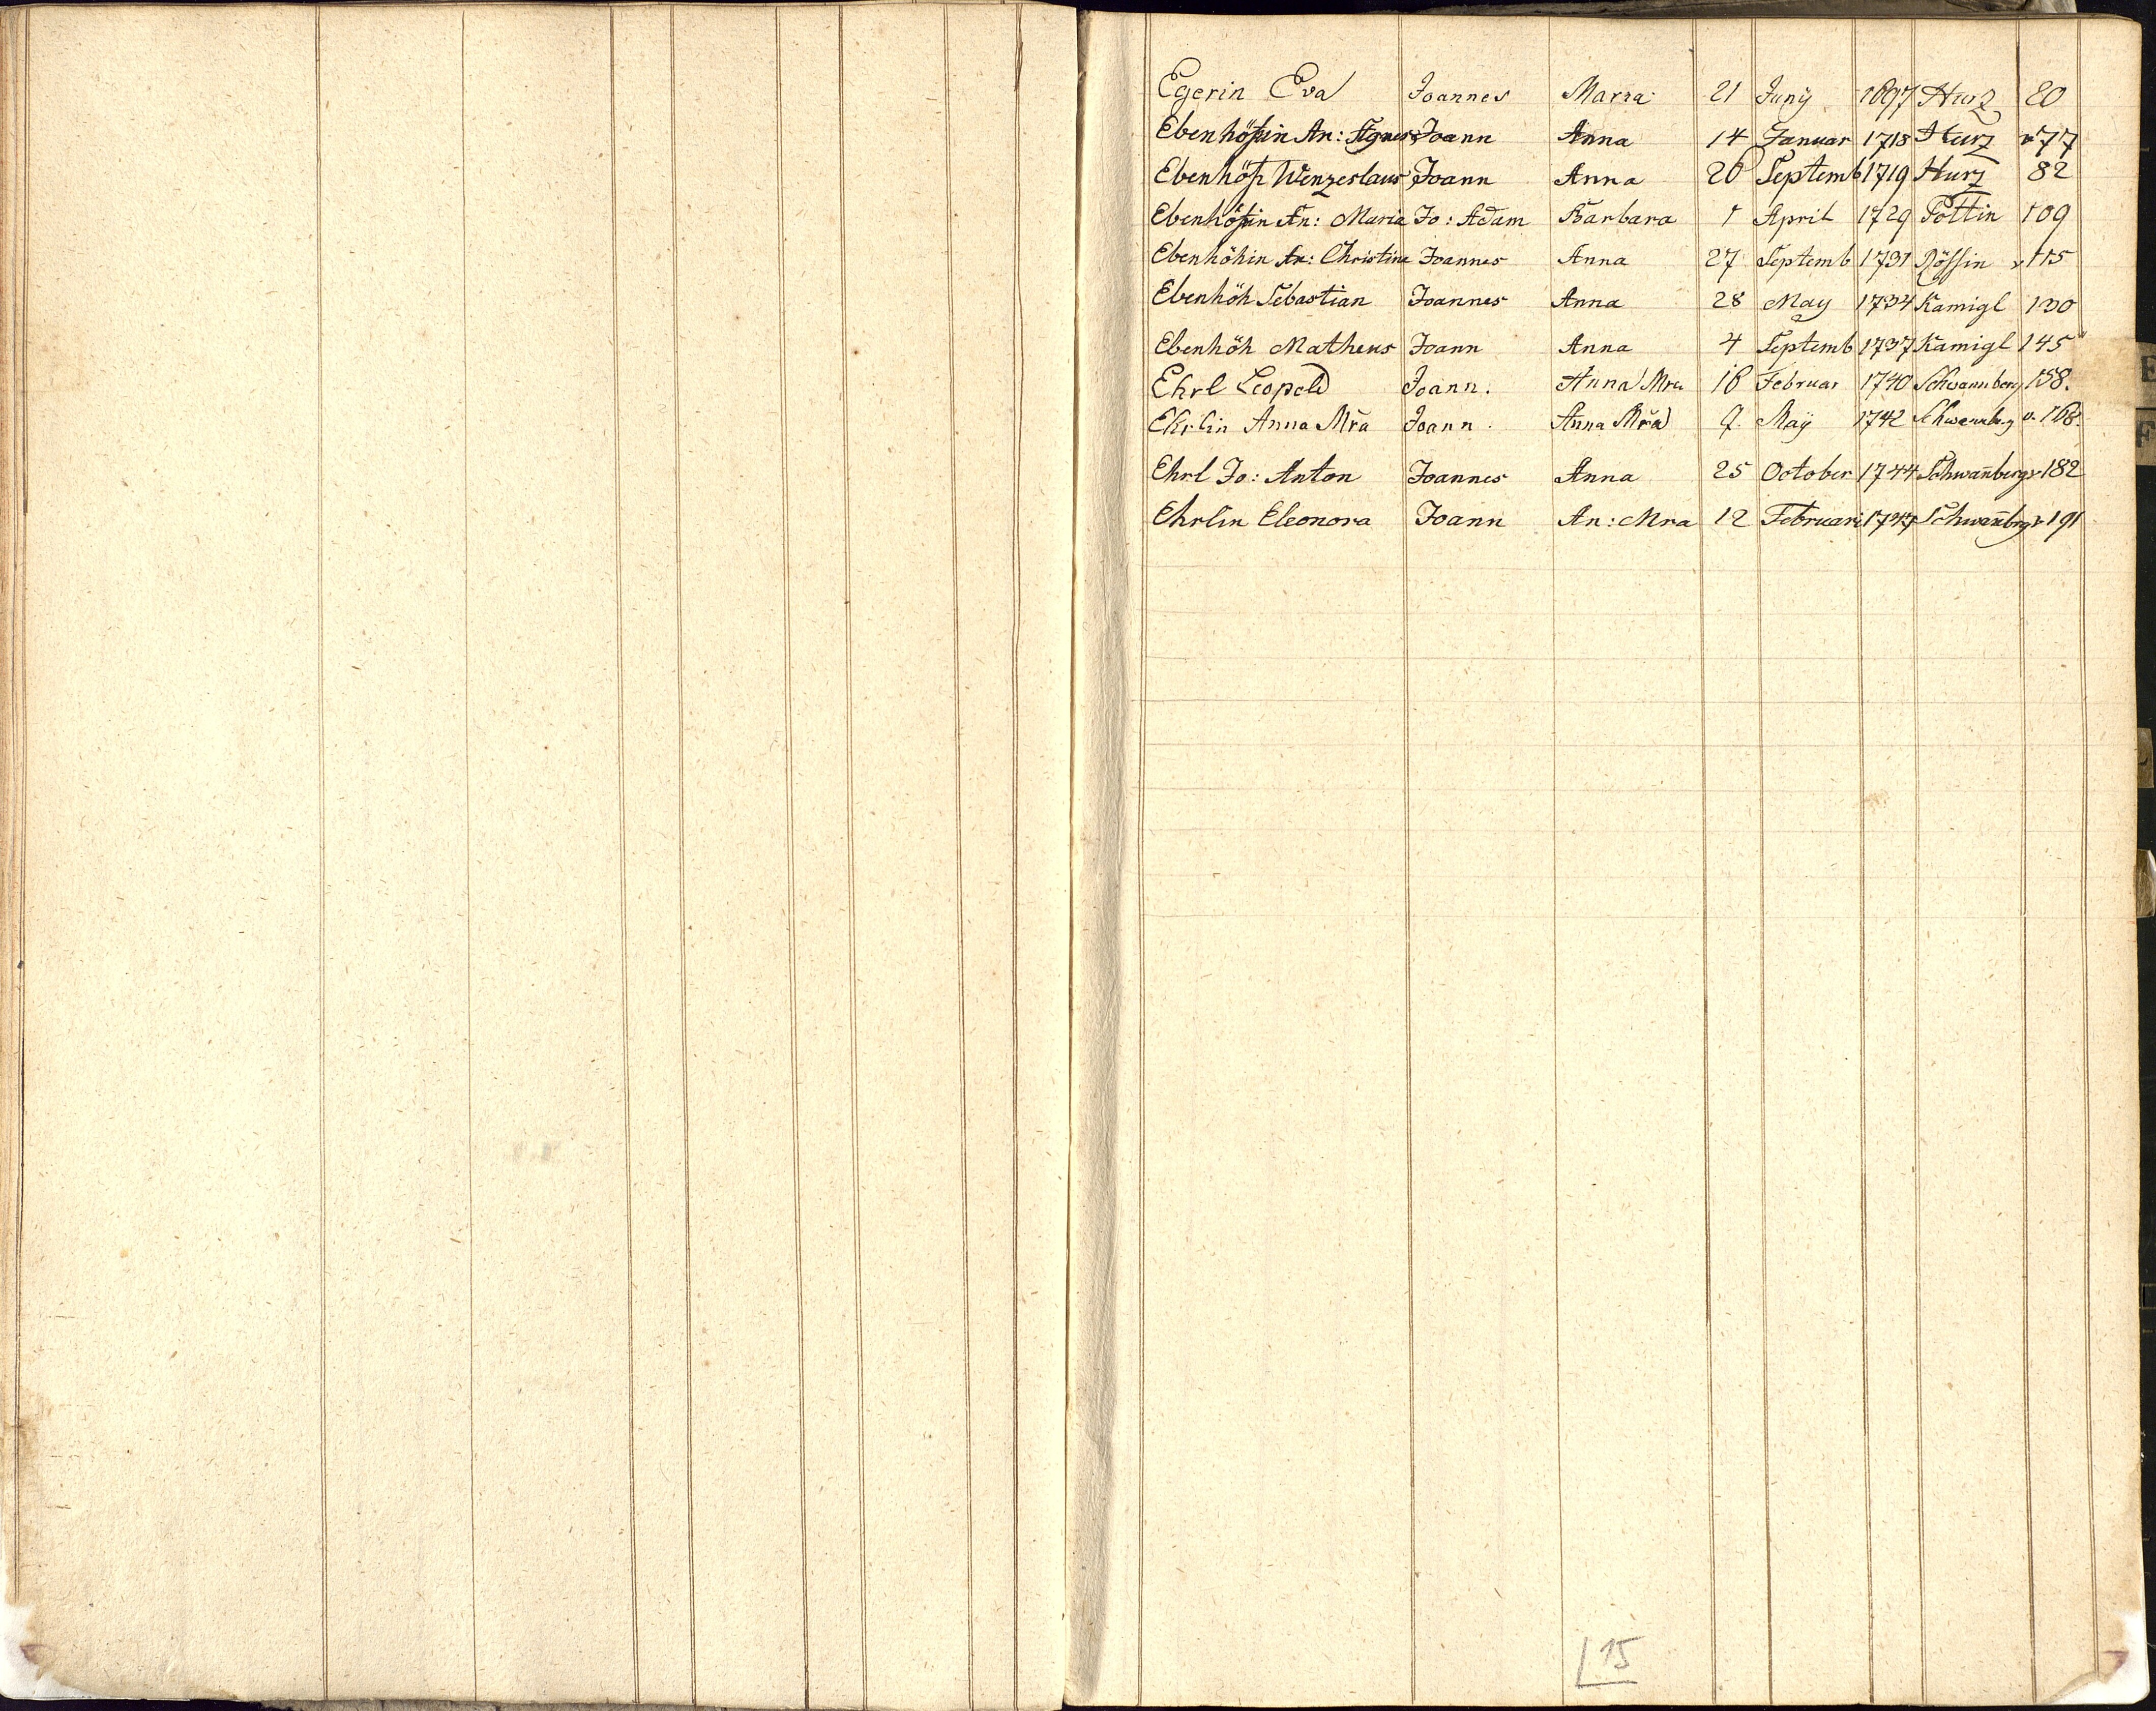 Egerin Eva Joannes Maria 21 Junÿ 1697 Hurz 20
Ebenhöhin An: Agnes Joann Anna 14 Januar 1718 Hurz v 77
Ebenhöh Wenzeslaus Joann Anna 20 Septemb 1719 Hurz 82
Ebenhöhin An: Maria Jo: Adam Barbara 1 April 1729 Pottin 109
Ebenhöhin An: Christina Joannes Anna 27 Septemb 1731 Rössin v 115
Ebenhöh Sebastian Joannes Anna 28 May 1734 Kamigl 130
Ebenhöh Matheus Joann Anna 4 Septemb 1737 Kamigl 145
Ehrl Leopold Joann. Anna Mra 16 Februar 1740 Schwannberg 158.
Ehrlin Anna Mr̄a Joann. Anna Mr̄a 9. Maÿ 1742 Schwannberg v. 168.
Ehrl Jo: Anton Joannes Anna 25 October 1744 Schwan̄berg v 182
Ehrlin Eleonora Joann An: Mra 12 Februari 1747 Schwan̄brg v 191
15
E
F